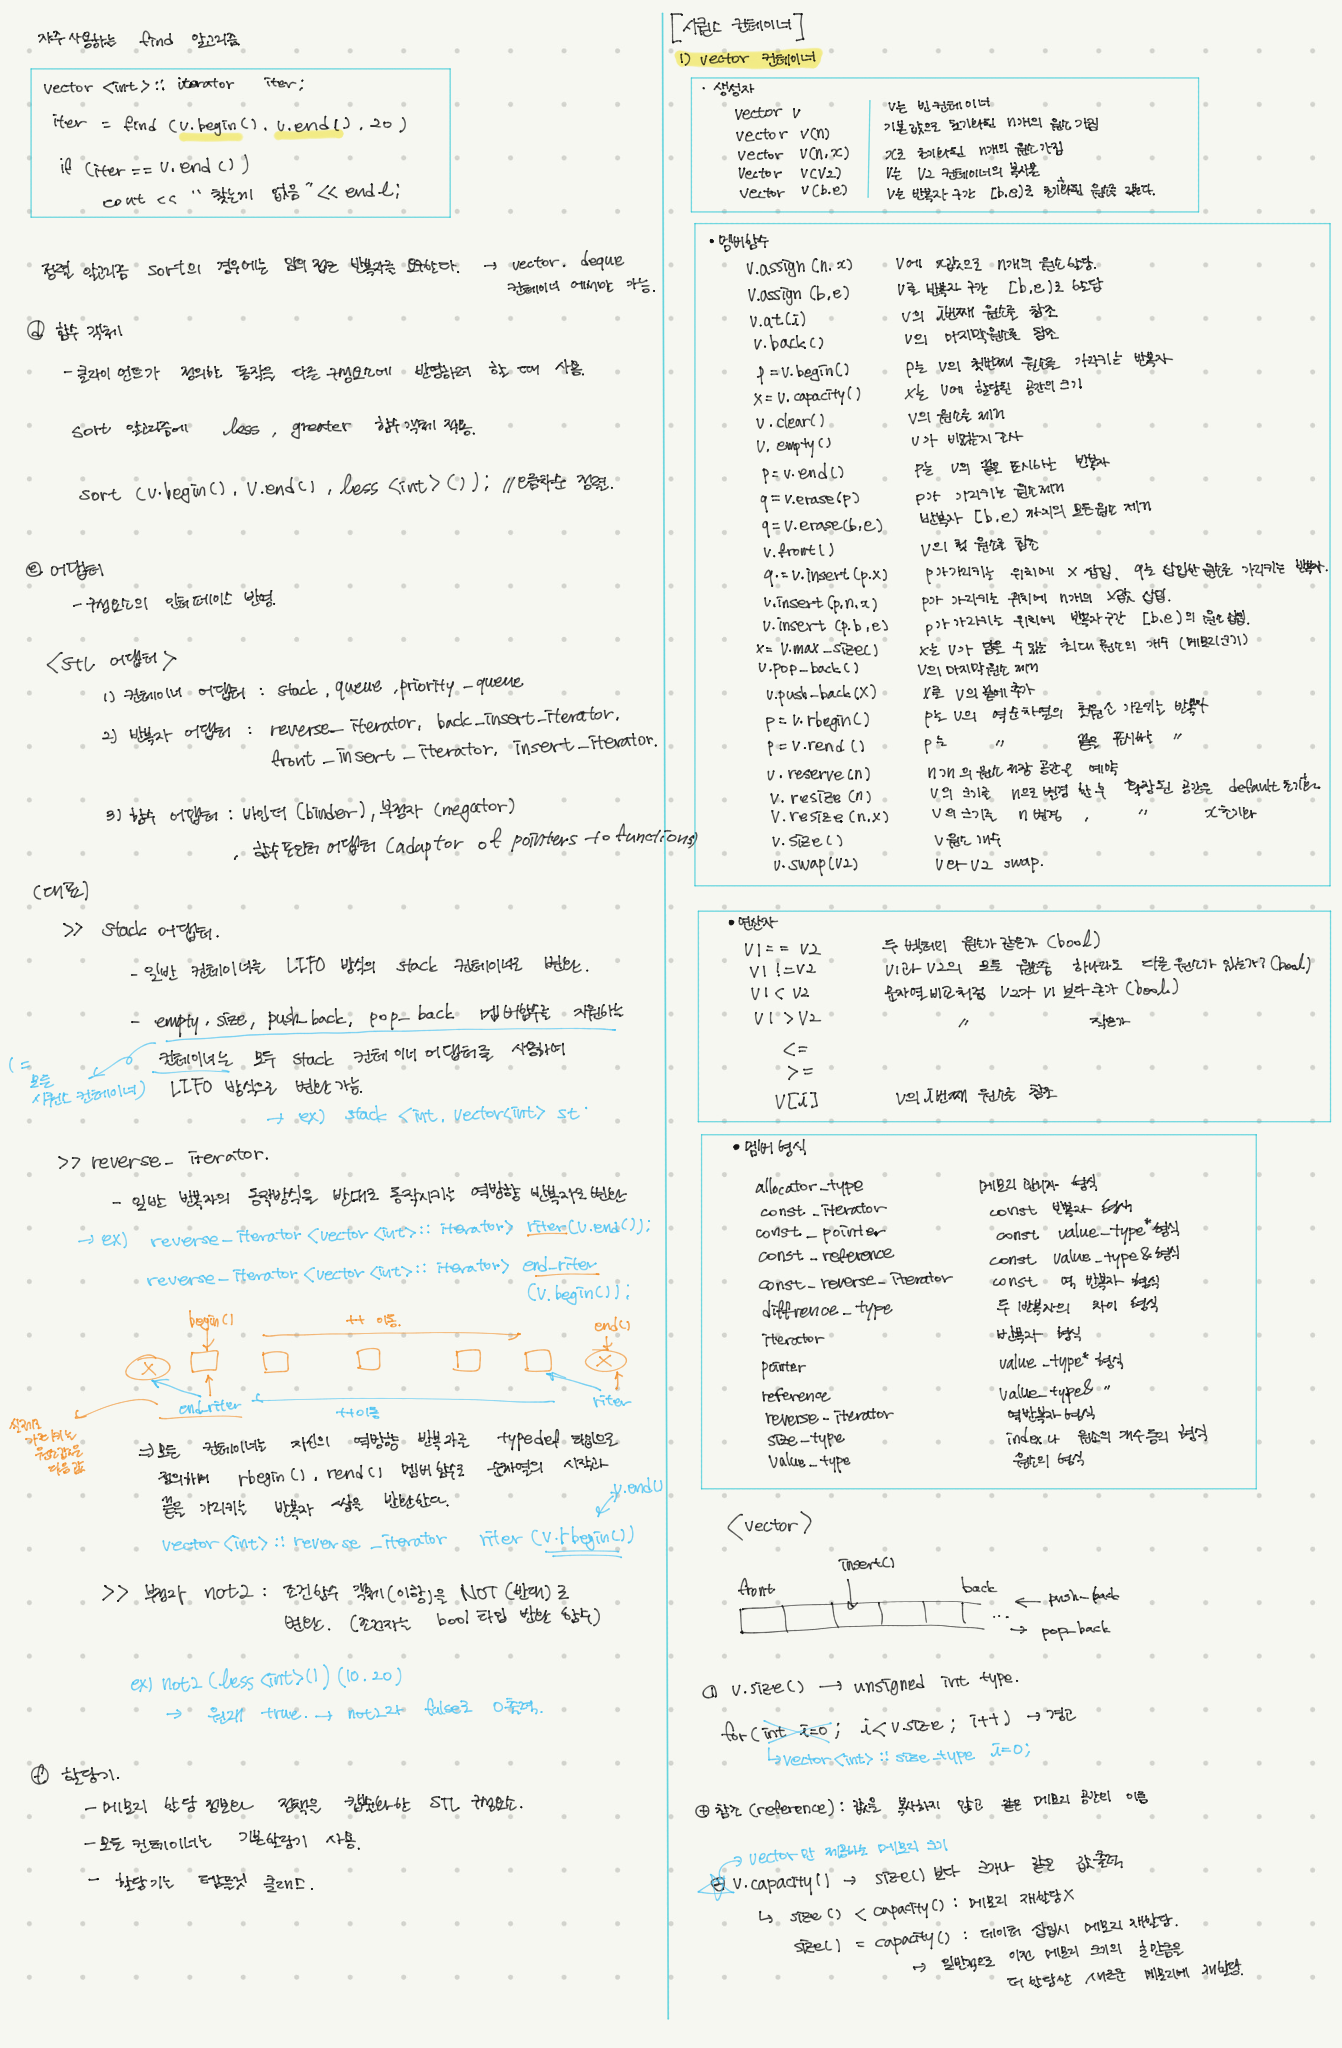 자주 사용하는 find 알고리즘
vector <int> :: iterator iter;
iter = find (v.begin(), v.end(), 20)
if (iter == v.end())
cout << "찾는게 없음" << endl;
정렬 알고리즘 sort의 경우에는 임의 접근 반복자를 요구한다. → vector, deque
컨테이너에서만 가능.
ⓓ 함수 객체
- 클라이언트가 정의한 동작을 다른 구성요소에 반영하려 할 때 사용.
sort 알고리즘에 less, greater 함수 객체 적용.
sort (v.begin(), v.end(), less <int>()); // 오름차순 정렬.
ⓔ 어댑터
- 구성요소의 인터페이스 변경.
<stl 어댑터>
1) 컨테이너 어댑터 : stack, queue, priority_queue
2) 반복자 어댑터 : reverse_iterator, back_insert_iterator,
front_insert_iterator, insert_iterator.
3) 함수 어댑터 : 바인더 (binder), 부정자 (negator)
, 함수 포인터 어댑터 (adaptor of pointers to functions)
(대표)
>> stack 어댑터.
- 일반 컨테이너를 LIFO 방식의 stack 컨테이너로 변환.
- empty, size, push_back, pop_back 멤버함수를 지원하는
컨테이너는 모두 stack 컨테이너 어댑터를 사용하여
LIFO 방식으로 변환 가능.
(= 모든
시퀀스 컨테이너)
→ ex) stack <int, vector<int> st
>> reverse_iterator.
- 일반 반복자의 동작방식을 반대로 동작시키는 역방향 반복자로 변환
→ ex) reverse_iterator <vector <int> :: iterator> riter(v.end());
reverse_iterator <vector <int> :: iterator> end_riter
(v.begin());
begin() ++ 이동. end()
X X
end_riter ++이동 riter
실제로
가리키는
원소값은
다음 값
⇒ 모든 컨테이너는 자신의 역방향 반복자를 typedef 타입으로
정의하며 rbegin(), rend() 멤버 함수로 순차열의 시작과
끝을 가리키는 반복자 쌍을 반환한다.
v.end()
vector <int> :: reverse_iterator riter (v.rbegin())
>> 부정자 not2 : 조건함수 객체(이항)을 NOT (반대)로
변환. (조건자는 bool 타입 반환 함수)
ex) not2 (less <int>()) (10, 20)
→ 원래 true. → not2라 false로 0 출력.
ⓕ 할당기.
- 메모리 할당 정보와 정책을 캡슐화한 STL 구성요소.
- 모든 컨테이너는 기본할당기 사용.
- 할당기는 템플릿 클래스.
[시퀀스 컨테이너]
1) vector 컨테이너
· 생성자
vector v v는 빈 컨테이너
vector v(n) 기본값으로 초기화된 n개의 원소 가짐
vector v(n,x) x로 초기화된 n개의 원소 가짐
vector v(v2) v는 v2 컨테이너의 복사본
vector v(b,e) v는 반복자 구간 [b,e)로 초기화된 원소를 갖는다.
• 멤버함수
v.assign (n,x) v에 x값으로 n개의 원소 할당.
v.assign (b,e) v를 반복자 구간 [b,e)로 할당
v.at(i) v의 i번째 원소를 참조
v.back() v의 마지막 원소를 참조
p = v.begin() p는 v의 첫번째 원소를 가리키는 반복자
x = v.capacity() x는 v에 할당된 공간의 크기
v.clear() v의 원소를 제거
v.empty() v가 비었는지 조사
p = v.end() p는 v의 끝을 표시하는 반복자
q = v.erase(p) p가 가리키는 원소 제거
q = v.erase(b,e) 반복자 [b,e) 까지의 모든 원소 제거
v.front() v의 첫 원소를 참조
q = v.insert(p,x) p가 가리키는 위치에 x 삽입. q는 삽입한 원소를 가리키는 반복자.
v.insert (p,n,x) p가 가리키는 위치에 n개의 x값 삽입.
v.insert (p,b,e) p가 가리키는 위치에 반복자 구간 [b,e)의 원소 삽입.
x = v.max_size() x는 v가 담을 수 있는 최대 원소의 개수 (메모리 크기)
v.pop_back() v의 마지막 원소 제거
v.push_back(x) x를 v의 끝에 추가
p = v.rbegin() p는 v의 역순차열의 첫원소 가르키는 반복자
p = v.rend() p는 〃 끝을 표시하는 〃
v.reserve(n) n개의 원소 저장 공간을 예약
v.resize (n) v의 크기를 n으로 변경 한 후 확장된 공간은 default 초기화.
v.resize (n,x) v의 크기를 n 변경, 〃 x 초기화
v.size() v 원소 개수
v.swap(v2) v와 v2 swap.
• 연산자
v1 == v2 두 벡터의 원소가 같은가 (bool)
v1 != v2 v1과 v2의 모든 원소중 하나라도 다른 원소가 있는가? (bool)
v1 < v2 문자열 비교처럼 v2가 v1 보다 큰가 (bool)
v1 > v2 〃 작은가
<=
>=
v[i] v의 i번째 원소를 참조
• 멤버 형식
allocator_type 메모리 할당자 형식
const_iterator const 반복자 형식
const_pointer const value_type* 형식
const_reference const value_type& 형식
const_reverse_iterator const 역 반복자 형식
diffrence_type 두 반복자의 차이 형식
iterator 반복자 형식
pointer value_type* 형식
reference value_type& 〃
reverse_iterator 역반복자 형식
size_type index나 원소의 개수 등의 형식
value_type 원소의 형식
<vector>
insert()
front back
... ← push_back
→ pop_back
v.size() → unsigned int type.
for (int i=0; i<v.size; i++) → 경고
↳ vector<int> :: size_type i=0;
⊕ 참조 (reference) : 값을 복사하지 않고 같은 메모리 공간의 이름
→ vector만 제공하는 메모리 크기
v.capacity() → size() 보다 크거나 같은 값 출력
↳ size() < capacity() : 메모리 재할당 X
size() = capacity() : 데이터 삽입시 메모리 재할당.
→ 일반적으로 이전 메모리 크기의 반만큼을
더 할당한 새로운 메모리에 재할당.